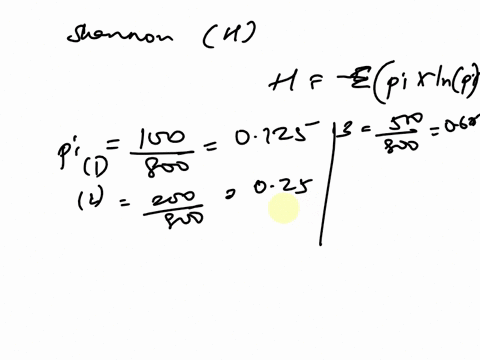 Shannon (H)
H = -Σ(pi x ln(pi)
pi (1) = 100/800 = 0.125
(2) = 200/800 = 0.25
3 = 500/800 = 0.625